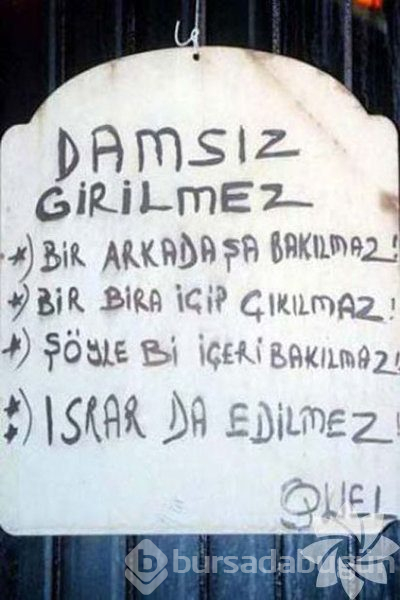 DAMSIZ
GİRİLMEZ
*) BİR ARKADAŞA BAKILMAZ!
*) BİR BİRA İÇİP ÇIKILMAZ!
*) ŞÖYLE Bİ İÇERİ BAKILMAZ!
*) ISRAR DA EDİLMEZ!
bursadabugün